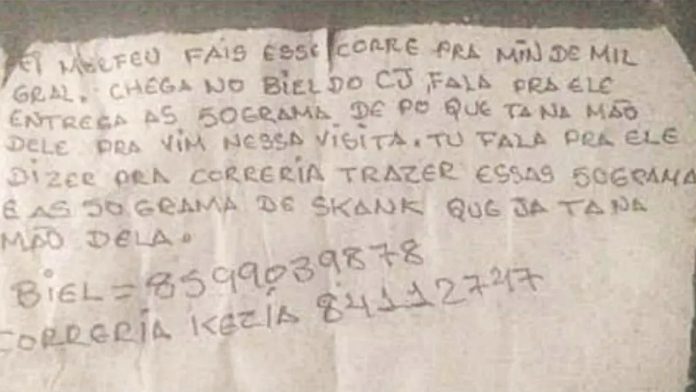 EI MORFEU FAIS ESSE CORRE PRA MIN DE MIL
GRAL. CHEGA NO BIEL DO CJ, FALA PRA ELE
ENTREGA AS 50GRAMA DE PO QUE TA NA MÃO
DELE PRA VIM NESSA VISITA. TU FALA PRA ELE
DIZER PRA CORRERÍA TRAZER ESSAS 50GRAMA
E AS 50 GRAMA DE SKANK QUE JA TA NA
MÃO DELA.
BIEL = 8599039878
CORRERÍA KEZÍA 84112747